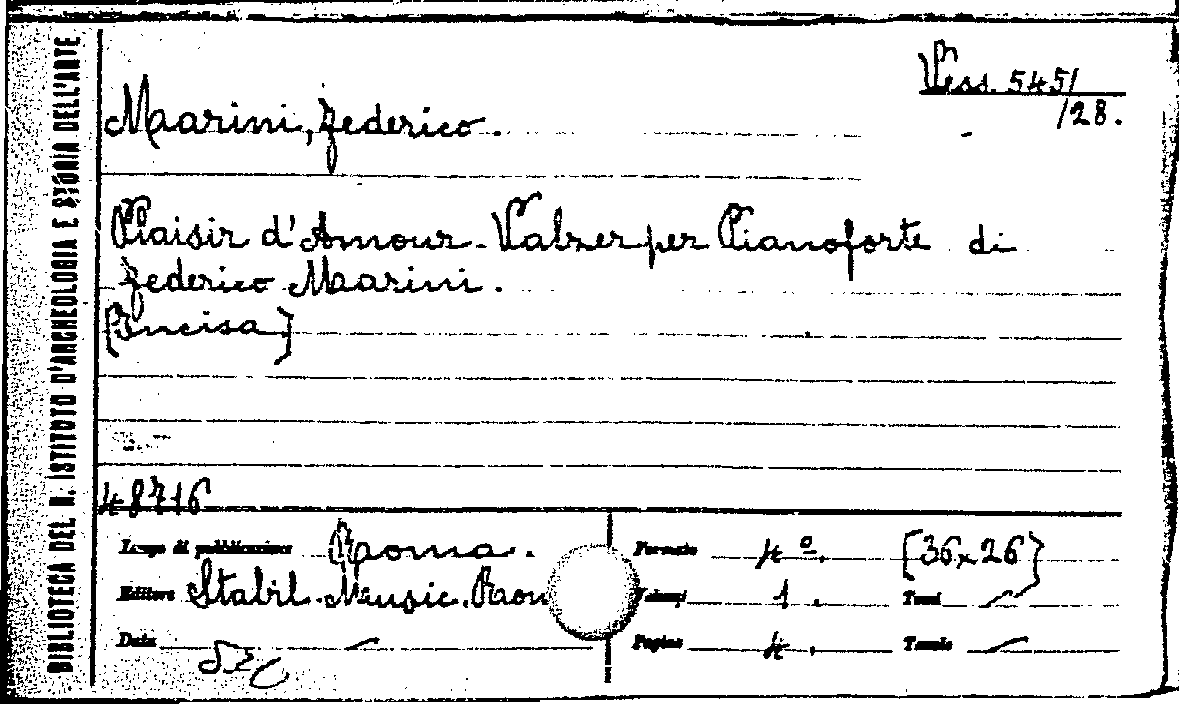 BIBLIOTECA DEL R. ISTITUTO D'ARCHEOLOGIA E STORIA DELL'ARTE
Vess. 545/
/28.
Maarini, Federico.
Plaisir d'Amour. Valzer per Pianoforte di
Federico Maarini.
[Incisa]
48716
Luogo di pubblicazione Roma. Formato 4º. [36x26]
Editore Stabil. Music. Rom Volumi 1. Tomi –
Data – Pagine 4. Tavole –